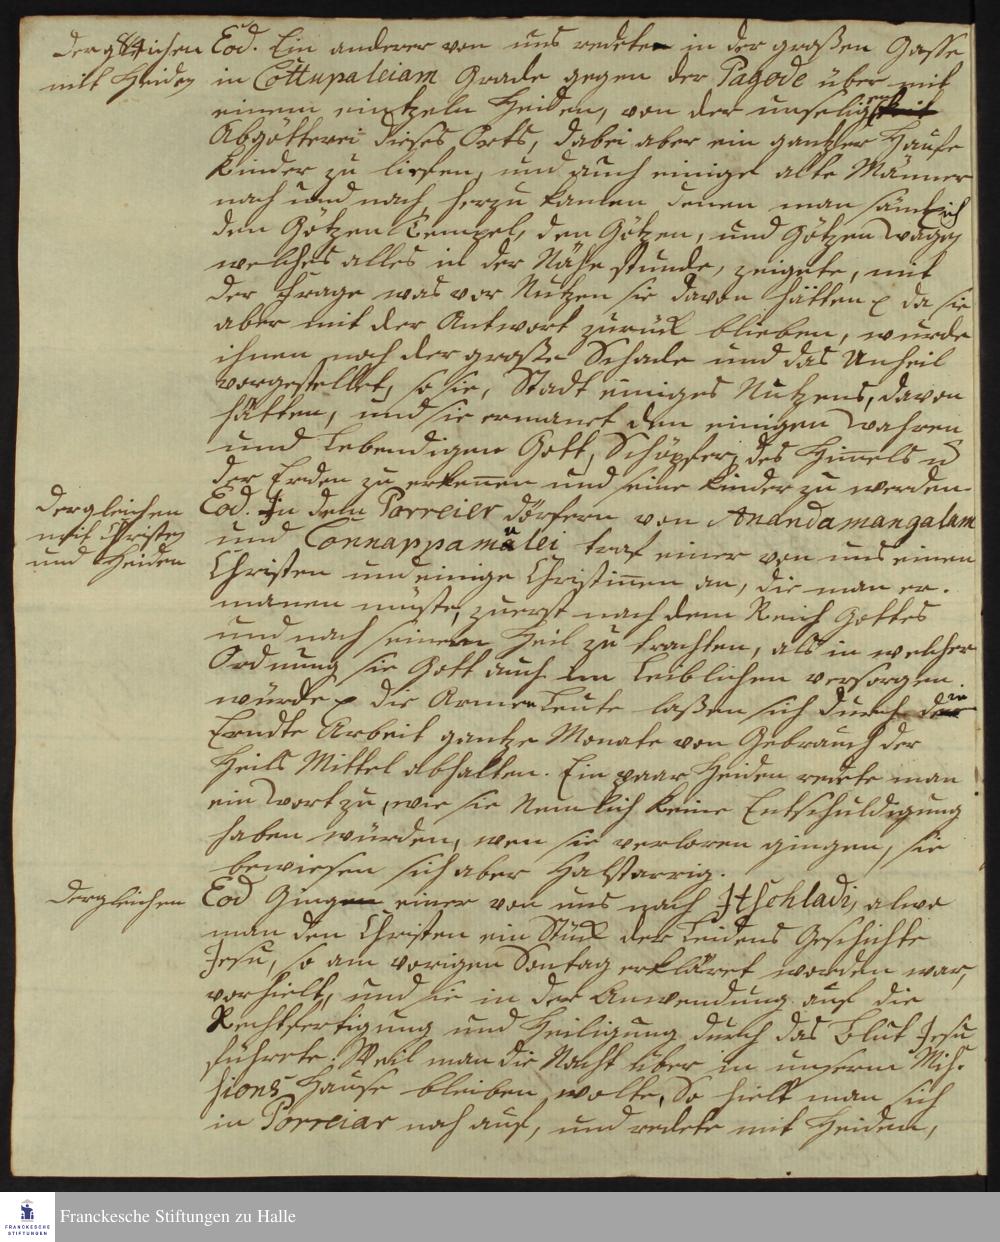 dergleichen
mit Heiden
Eod. Ein anderer von uns redete in der großen Gasse
in Cottupaleiam Grade gegen der Pagode über mit
einem eintzeln Heiden, von der unseligen
Abgötterei dieses Orts, dabei aber ein gantzer Haufe
Kinder zu liefen, und auch einige alte Männer
nach und nach herzu kamen denen man sämtlich
den Götzen Tempel, den Götzen, und Götzen Wagen
welches alles in der Nähe stunde, zeigete, mit
der Frage was vor Nutzen sie davon hätten da sie
aber mit der Antwort zurück blieben, wurde
ihnen noch der große Schade und das Unheil
vorgestellet, so sie, Stadt einiges Nutzens, davon
hätten, und sie ermanet den einigen wahren
und Lebendigen Gott, Schöpfer des Himmels u
der Erden zu erkennen und seine Kinder zu werden.
dergleichen
mit Christen
und Heiden
Eod. In den Porreier dörfern von Anandamangalam
und Connappamulei traf einer von uns einen
Christen und einige Christinnen an, die man er-
manen muste, zuerst nach dem Reich Gottes
und nach seinem Heil zu trachten, als in welcher
Ordnung sie Gott auch im Leiblichen versorgen
würde die Armen Leute laßen sich durch die
Erndte Arbeit gantze Monate von Gebrauch der
Heils Mittel abhalten. Ein paar Heiden redete man
ein Wort zu, wie sie Nemlich keine Entschuldigung
haben würden, wen sie verloren gingen, sie
bewiesen sich aber Halstarrig.
dergleichen
Eod Ging einer von uns nach Itschladi, alwo
man den Christen ein Stük der Leidens Geschichte
Jesu, so am vorigen Sontag erkläret worden war,
vorhielt, und sie in der Anwendung auf die
Rechtfertigung und Heiligung durch das Blut Jesu
führete. Weil man die Nacht über in unserm Miß-
sions Hause bleiben wolte, So hielt man sich
in Porreiar noch auf, und redete mit Heiden,
FRANCKESCHE
STIFTUNGEN
Franckesche Stiftungen zu Halle